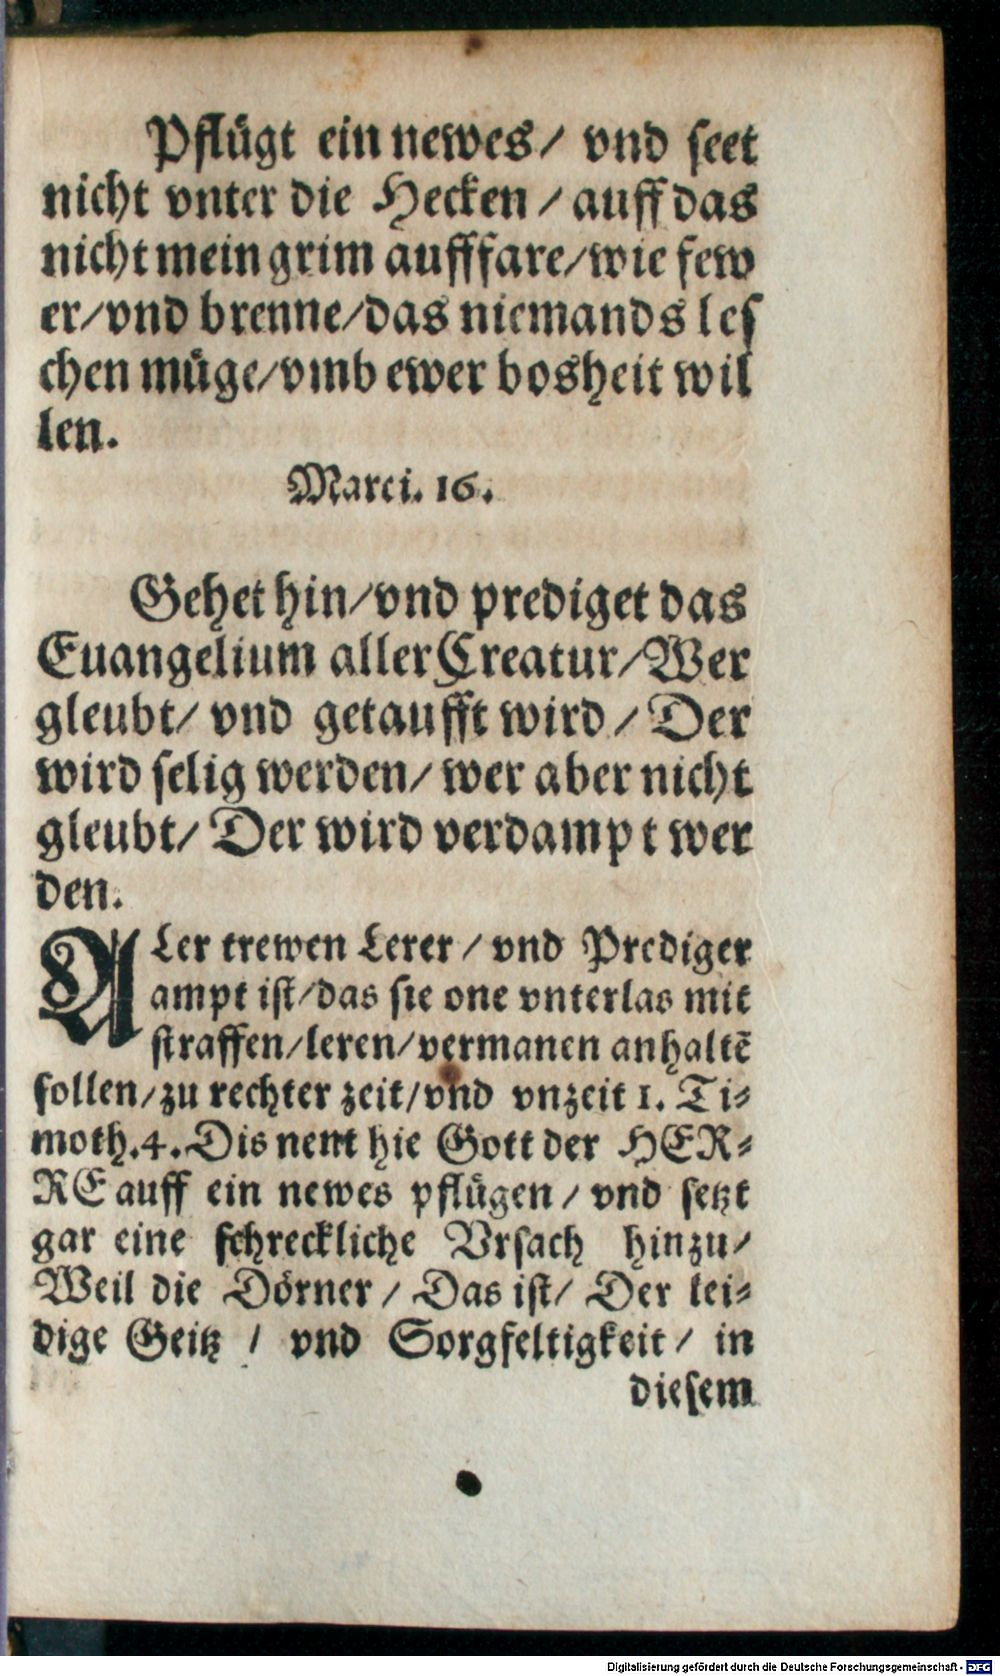 Pflügt ein newes/ vnd seet
nicht vnter die Hecken/ auff das
nicht mein grim aufffare/wie few
er/vnd brenne/das niemands les
chen müge/vmb ewer bosheit wil
len.
Marci. 16.
Gehet hin/vnd prediget das
Euangelium aller Creatur/Wer
gleubt/ vnd getaufft wird/ Der
wird selig werden/ wer aber nicht
gleubt/ Der wird verdampt wer
den.
ALer trewen Lerer/ vnd Prediger
ampt ist/das sie one vnterlas mit
straffen/leren/vermanen anhaltē
sollen/zu rechter zeit/vnd vnzeit 1. Ti⸗
moth.4. Dis nent hie Gott der HER⸗
RE auff ein newes pflügen/ vnd setzt
gar eine schreckliche Vrsach hinzu/
Weil die Dörner/ Das ist/ Der lei⸗
dige Geitz/ vnd Sorgfeltigkeit/ in
diesem
Digitalisierung gefördert durch die Deutsche Forschungsgemeinschaft - DFG